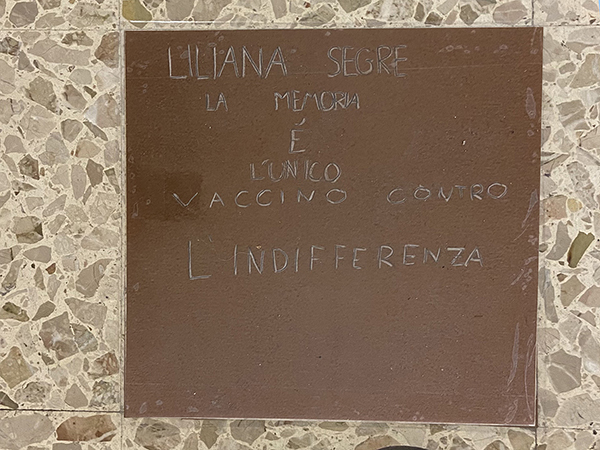 LILIANA SEGRE
LA MEMORIA
É
L'UNICO
VACCINO CONTRO
L'INDIFFERENZA